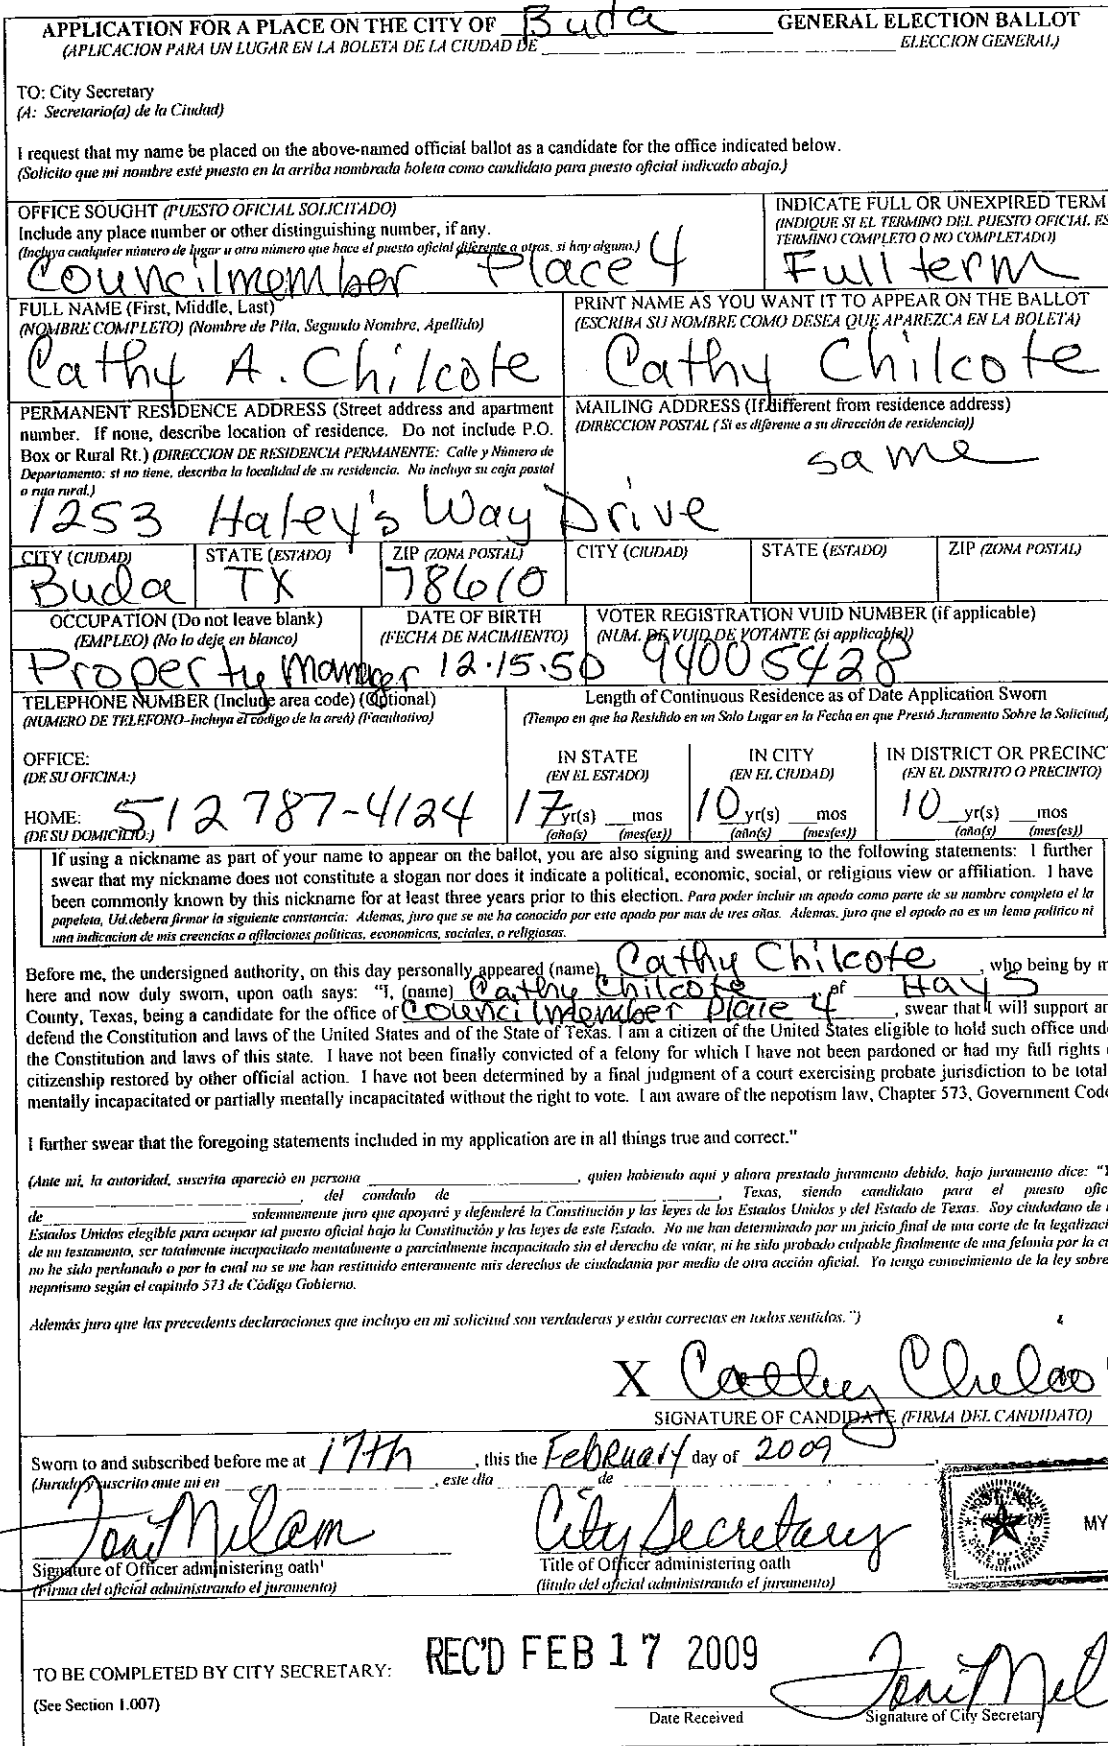 APPLICATION FOR A PLACE ON THE CITY OF Buda GENERAL ELECTION BALLOT
(APLICACION PARA UN LUGAR EN LA BOLETA DE LA CIUDAD DE ELECCION GENERAL)
TO: City Secretary
(A: Secretario(a) de la Ciudad)
I request that my name be placed on the above-named official ballot as a candidate for the office indicated below.
(Solicito que mi nombre esté puesto en la arriba nombrada boleta como candidato para puesto oficial indicado abajo.)
OFFICE SOUGHT (PUESTO OFICIAL SOLICITADO)
Include any place number or other distinguishing number, if any.
(Incluya cualquier número de lugar u otro número que hace el puesto oficial diferente a otros, si hay alguno.)
Councilmember Place 4
INDICATE FULL OR UNEXPIRED TERM
(INDIQUE SI EL TERMINO DEL PUESTO OFICIAL ES
TERMINO COMPLETO O NO COMPLETADO)
Full term
FULL NAME (First, Middle, Last)
(NOMBRE COMPLETO) (Nombre de Pila, Segundo Nombre, Apellido)
Cathy A. Chilcote
PRINT NAME AS YOU WANT IT TO APPEAR ON THE BALLOT
(ESCRIBA SU NOMBRE COMO DESEA QUE APAREZCA EN LA BOLETA)
Cathy Chilcote
PERMANENT RESIDENCE ADDRESS (Street address and apartment
number. If none, describe location of residence. Do not include P.O.
Box or Rural Rt.) (DIRECCION DE RESIDENCIA PERMANENTE: Calle y Número de
Departamento: si no tiene, describa la localidad de su residencia. No incluya su caja postal
o ruta rural.)
1253 Haley's Way Drive
MAILING ADDRESS (If different from residence address)
(DIRECCION POSTAL (Si es diferente a su dirección de residencia))
same
CITY (CIUDAD) STATE (ESTADO) ZIP (ZONA POSTAL) CITY (CIUDAD) STATE (ESTADO) ZIP (ZONA POSTAL)
Buda TX 78610
OCCUPATION (Do not leave blank)
(EMPLEO) (No lo deje en blanco)
Property Manager
DATE OF BIRTH
(FECHA DE NACIMIENTO)
12.15.50
VOTER REGISTRATION VUID NUMBER (if applicable)
(NUM. DE VUID DE VOTANTE (si applicable))
94005428
TELEPHONE NUMBER (Include area code) (Optional)
(NUMERO DE TELEFONO-Incluya el código de la area) (Facultativo)
OFFICE:
(DE SU OFICINA:)
HOME: 512 787-4124
(DE SU DOMICILIO:)
Length of Continuous Residence as of Date Application Sworn
(Tiempo en que ha Residido en un Solo Lugar en la Fecha en que Prestó Juramento Sobre la Solicitud)
IN STATE IN CITY IN DISTRICT OR PRECINC
(EN EL ESTADO) (EN EL CIUDAD) (EN EL DISTRITO O PRECINTO)
17 yr(s) mos 10 yr(s) mos 10 yr(s) mos
(año(s) (mes(es)) (año(s) (mes(es)) (año(s) (mes(es))
If using a nickname as part of your name to appear on the ballot, you are also signing and swearing to the following statements: I further
swear that my nickname does not constitute a slogan nor does it indicate a political, economic, social, or religious view or affiliation. I have
been commonly known by this nickname for at least three years prior to this election. Para poder incluir un apodo como parte de su nombre completo el la
papeleta, Ud.debera firmar la siguiente constancia: Ademas, juro que se me ha conocido por este apodo por mas de tres años. Ademas, juro que el apodo no es un lema político ni
una indicacion de mis creencias o afilaciones politicas, economicas, sociales, o religiosas.
Before me, the undersigned authority, on this day personally appeared (name) Cathy Chilcote, who being by m
here and now duly sworn, upon oath says: "I, (name) Cathy Chilcote, of Hays
County, Texas, being a candidate for the office of Councilmember Place 4, swear that I will support an
defend the Constitution and laws of the United States and of the State of Texas. I am a citizen of the United States eligible to hold such office unde
the Constitution and laws of this state. I have not been finally convicted of a felony for which I have not been pardoned or had my full rights
citizenship restored by other official action. I have not been determined by a final judgment of a court exercising probate jurisdiction to be total
mentally incapacitated or partially mentally incapacitated without the right to vote. I am aware of the nepotism law, Chapter 573, Government Code
I further swear that the foregoing statements included in my application are in all things true and correct."
(Ante mi, la autoridad, suscrita apareció en persona , quien habiendo aqui y ahora prestado juramento debido, bajo juramento dice: "Y
, del condado de , Texas, siendo candidato para el puesto ofic
de solemnemente juro que apoyaré y defenderé la Constitución y las leyes de los Estados Unidos y del Estado de Texas. Soy ciudadano de
Estados Unidos elegible para ocupar tal puesto oficial bajo la Constitución y las leyes de este Estado. No me han determinado por un juicio final de una corte de la legalizaci
de un testamento, ser totalmente incapacitado mentalmente o parcialmente incapacitado sin el derecho de votar, ni he sido probado culpable finalmente de una felonia por la c
no he sido perdonado o por la cual no se me han restituido enteramente mis derechos de ciudadania por medio de otra acción oficial. Yo tengo conocimiento de la ley sobre
nepotismo según el capitulo 573 de Código Gobierno.
Además juro que las precedents declaraciones que incluyo en mi solicitud son verdaderas y están correctas en todos sentidos.")
X Cathy Chilco
SIGNATURE OF CANDIDATE (FIRMA DEL CANDIDATO)
Sworn to and subscribed before me at 17th, this the February day of 2009,
(Jurado y suscrito ante mi en , este dia de
Toni Milam City Secretary
Signature of Officer administering oath Title of Officer administering oath
(Firma del oficial administrando el juramento) (titulo del oficial administrando el juramento)
MY
TO BE COMPLETED BY CITY SECRETARY: REC'D FEB 17 2009 Toni Mil
(See Section 1.007)
Date Received Signature of City Secretary